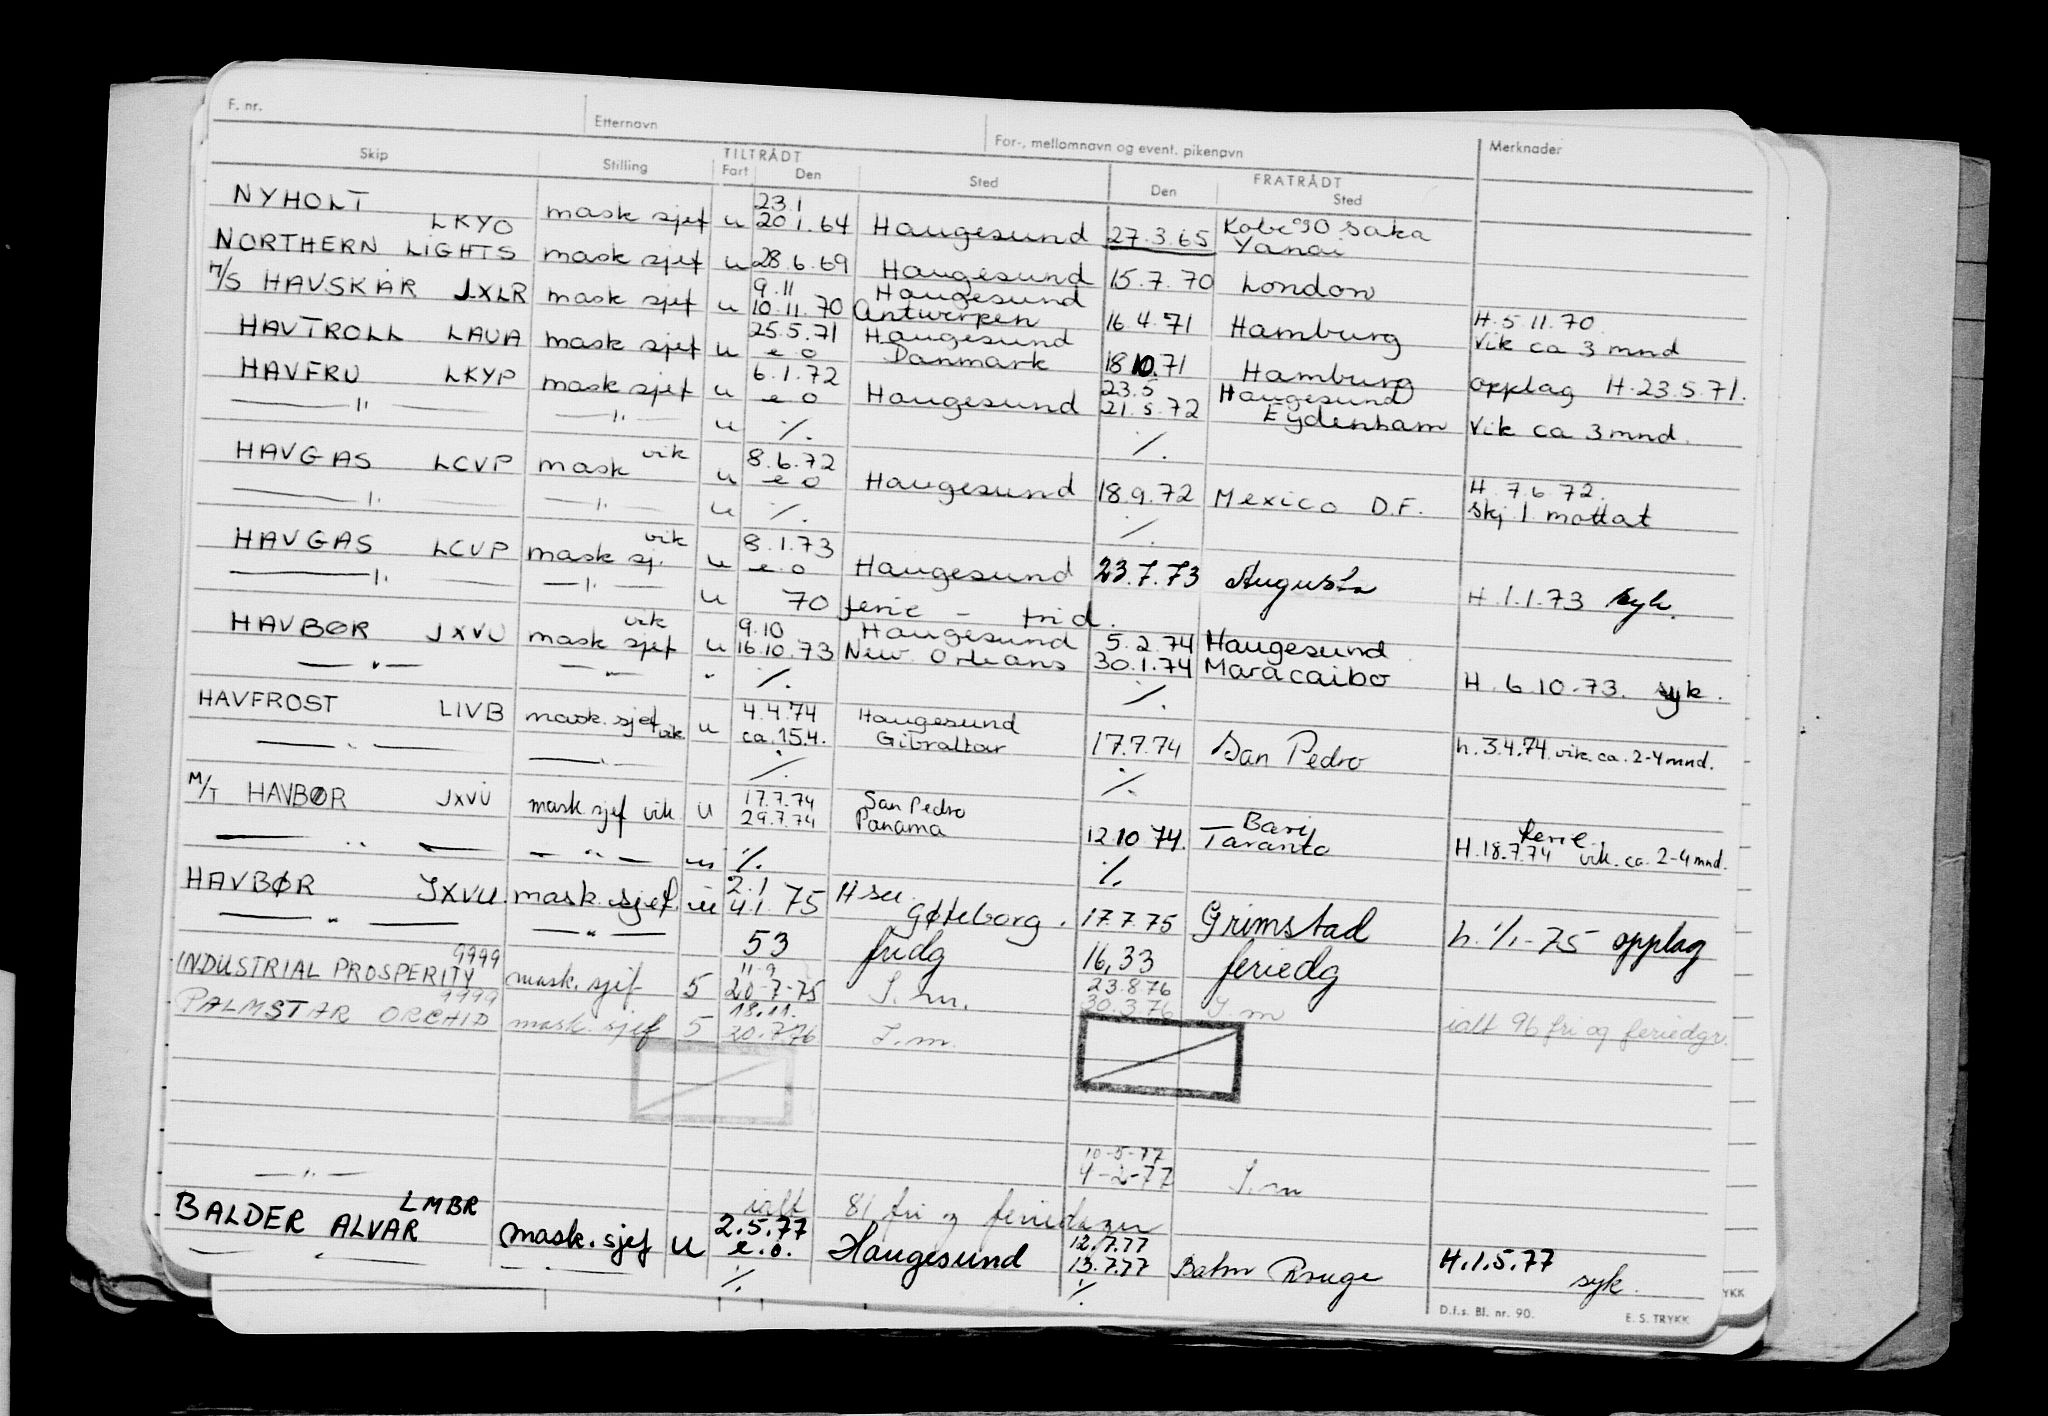 F. nr. Etternavn For-, mellomnavn og event. pikenavn Merknader
Skip Stilling TILTRÅDT Fart Den Sted FRATRÅDT Den Sted
NYHOLT LKYO mask sjef u 23.1 20.1.64 Haugesund 27.3.65 Kobe Osaka Yanai
NORTHERN LIGHTS mask sjef u 28.6.69 Haugesund 15.7.70 London
M/S HAVSKÅR JXLR mask sjef u 9.11 10.11.70 Haugesund Antwerpen 16.4.71 Hamburg H.5 11.70. Vik ca 3 mnd
HAVTROLL LAUA mask sjef u 25.5.71 e o Haugesund Danmark 18 10.71 Hamburg opplag H.23.5.71.
HAVFRU LKYP mask sjef u 6.1.72 e o Haugesund 23.5 21.5.72 Haugesund Eydenham Vik ca 3 mnd.
—"— —"— u %. %.
HAVGAS LCVP mask vik u 8.6.72 e o Haugesund 18.9.72 Mexico D.F. H. 7.6 72. skj. 1 mottat
—"— —"— u %. %.
HAVGAS LCVP mask sj. vik u 8.1.73 e.o Haugesund 23.7.73 Augusta H.1.1.73 syk.
—"— —"— u 70 ferie – frid.
HAVBØR JXVU mask sjef vik u 9.10 16.10.73 Haugesund New Orleans 5.2.74 30.1.74 Haugesund Maracaibo H.6 10.73. syk.
—"— —"— " %. %.
HAVFROST LIVB mask. sjef vik u 4.4.74 ca.15.4. Haugesund Gibraltar 17.7.74 San Pedro h.3.4.74 vik. ca. 2-4 mnd.
—"— —"— %. %.
M/T HAVBØR JXVU mask sjef vik U 17.7.74 29.7.74 San Pedro Panama 12 10 74. Bari Taranto H.18.7.74 ferie. vik. ca. 2-4 mnd.
—"— —"— %. %.
HAVBØR JXVU. mask. sjef. u 2.1 4.1. 75 H su Gøteborg. 17.7.75 Grimstad h. 1/1-75 opplag
—"— —"— 53 fridg 16,33 feriedg
INDUSTRIAL PROSPERITY 9999 mask. sjef 5 11.9 20-7-75 I.m. 23.876 30.3.76 I m
PALMSTAR ORCHID 9999 mask. sjef 5 18.11. 20.7.76 I.m. ialt 96 fri og feriedgr.
—"— 10-5-77 4-2-77 I.m
ialt 81 fri og feriedager
BALDER ALVAR LMBR mask. sjef u 2.5.77 e.o. Haugesund 12.7.77 13.7.77 Baton Rouge H.1.5.77 syk.
—"— —"— %. %.
D.f.s. Bl. nr. 90. E. S. TRYKK
YKK